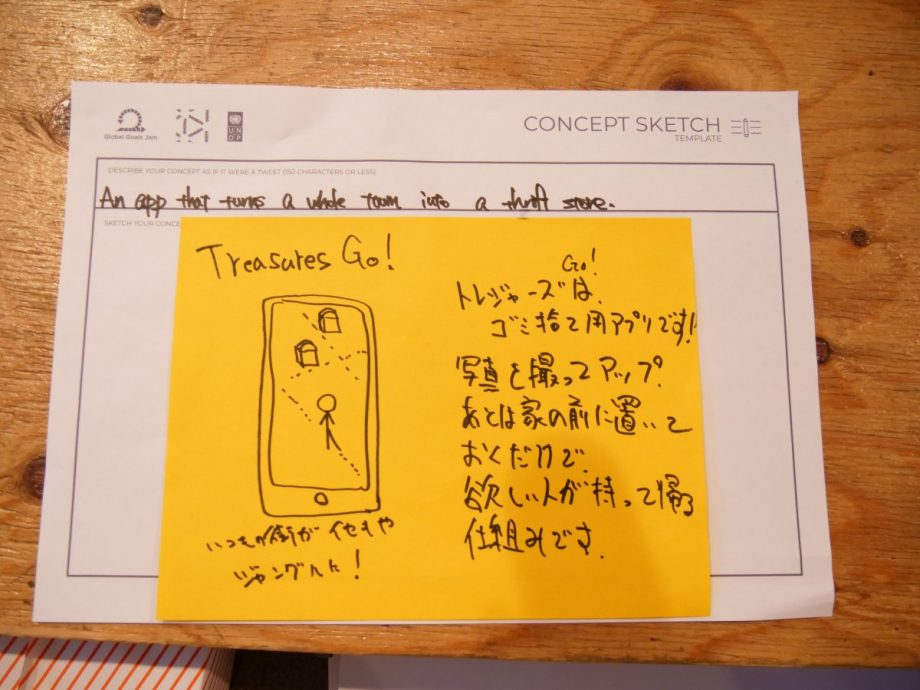 Global Goals Jam
U N
D P
CONCEPT SKETCH
TEMPLATE
DESCRIBE YOUR CONCEPT AS IF IT WERE A TWEET (150 CHARACTERS OR LESS)
An app that turns a whole town into a thrift store.
SKETCH YOUR CONCE
Treasures Go!
いつもの街がイセキや
ジャングルに!
Go!
トレジャーズは、
ゴミ捨て用アプリです!
写真を撮ってアップ.
あとは家の前に置いて
おくだけで.
欲しい人が持って帰る
仕組みです.